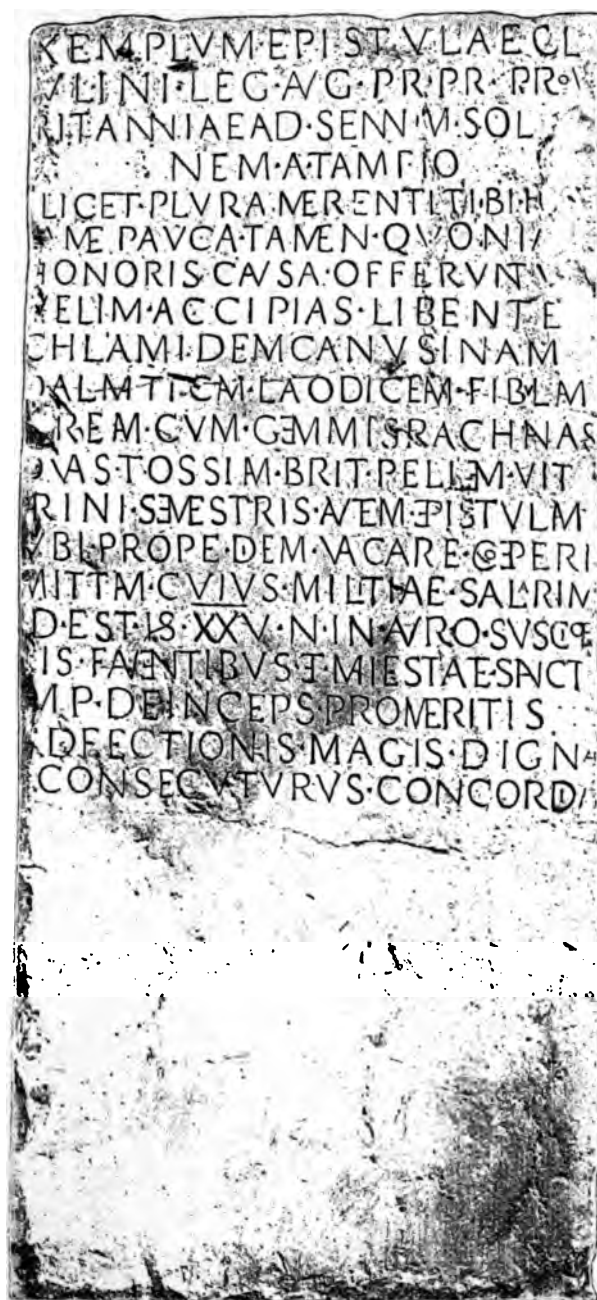 XEMPLVM·EPISTVLAE CL
VLINI·LEG·AVG·PR·PR·PROV
RITANNIAE AD·SENNIVM·SOL
NEM·A TAMPIO
LICET·PLVRA MERENTI·TIBI·H
A ME PAVCA·TAMEN·QVONIA
HONORIS·CAVSA·OFFERVNTV
VELIM·ACCIPIAS·LIBENTE
CHLAMIDEM CANVSINAM
DALMATICAM·LAODICEAM·FIBLAM
REAM·CVM·GEMMIS RACHNAS
DVAS·TOSSIAM·BRIT·PELLEM·VIT
RINI·SEMESTRIS·AVTEM·EPISTVLAM
VBI·PROPEDIEM·VACARE·COEPERI
MITTAM·CVIVS·MILITIAE·SALARIVM
D·EST·HS·XXV·N·IN·AVRO·SVSCIPE
IS·FAVENTIBVS ET·MAIESTATE·SANCT
MP·DEINCEPS·PRO MERITIS
ADFECTIONIS·MAGIS·DIGNA
CONSECVTVRVS·CONCORDI